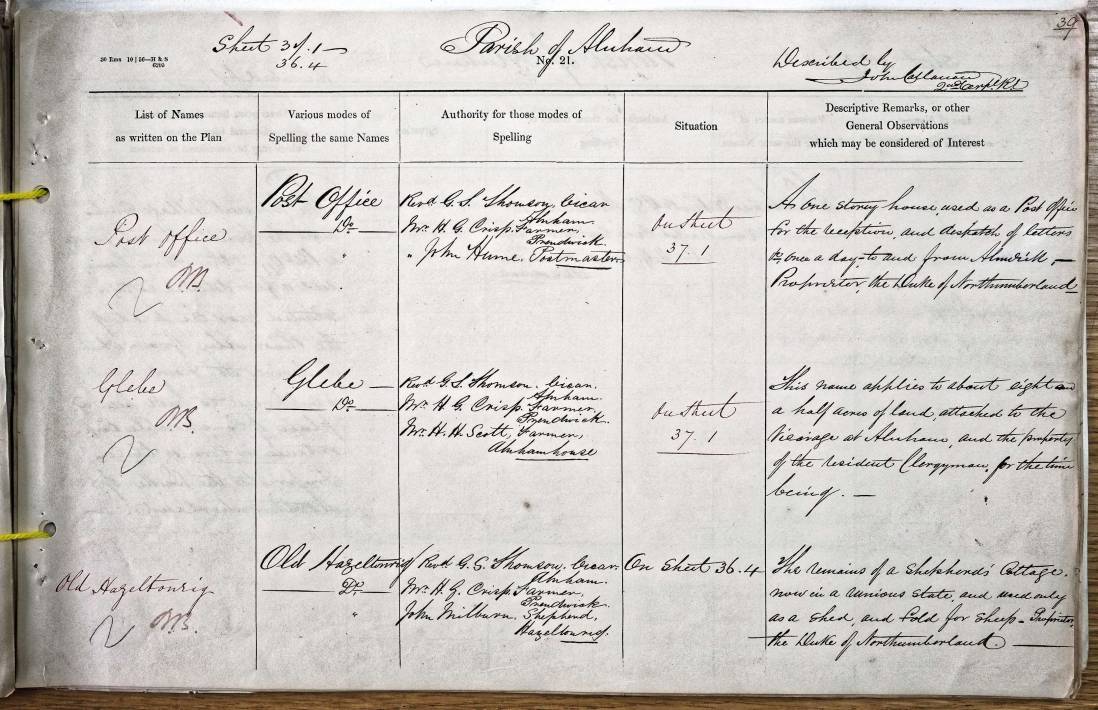 39
Sheet 37.1
36.4
Parish of Alnham
No. 21.
30 Rms 10 | 56—H & S
6205
Described by
John
2nd Corpl. R.E.
List of Names
as written on the Plan
Various modes of
Spelling the same Names
Authority for those modes of
Spelling
Situation
Descriptive Remarks, or other
General Observations
which may be considered of Interest
Post Office
Post Office
Do.
"
Revd. G.S. Thomson, Vicar
Alnham.
Mr. H. G. Crisp. Farmer,
Prendwick.
" John Hume. Postmaster.
On Sheet
37.1
A one storey house, used as a Post Office
for the reception, and despatch of letters
once a day, to and from Alnwick —
Proprietor, the Duke of Northumberland
Glebe
Glebe —
Do.
Revd. G.S. Thomson. Vicar.
Alnham.
Mr. H. G. Crisp. Farmer,
Prendwick.
Mr. H. H. Scott, Farmer,
Alnhamhouse
On Sheet
37.1
This name applies to about eight and
a half acres of land, attached to the
Vicarage at Alnham, and the property
of the resident Clergyman, for the time
being. —
Old Hazeltonrig
Old Hazeltonrig
Do.
"
Revd. G. S. Thomson, Vicar.
Alnham.
Mr. H. G. Crisp Farmer,
Prendwick.
John Milburn. Shepherd,
Hazeltonrig.
On Sheet 36.4
The remains of a Shepherd's Cottage.
now in a ruinous state, and used only
as a Shed, and Fold for Sheep – Proprietor,
the Duke of Northumberland.